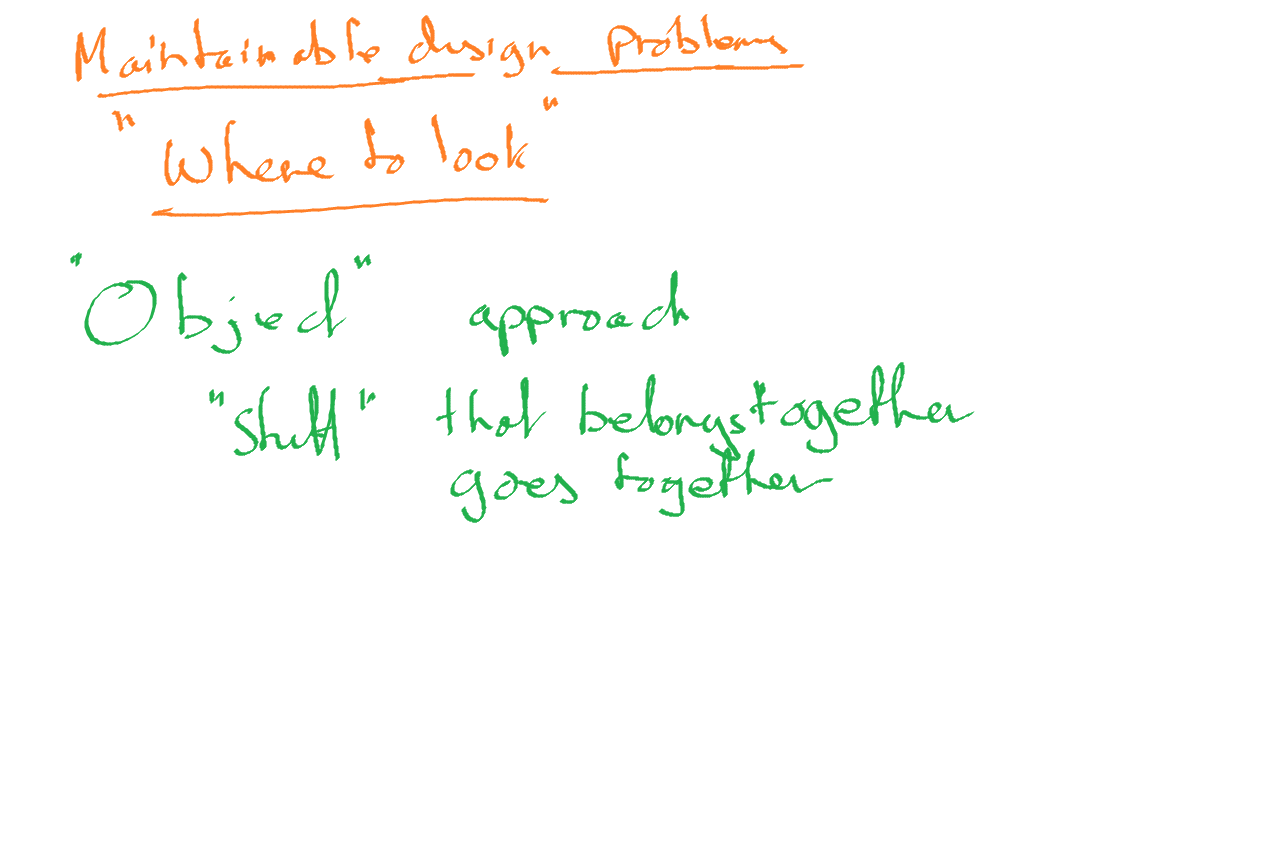 Maintainable design problems
"Where to look"
"Object" approach
"Stuff" that belongs together
goes together